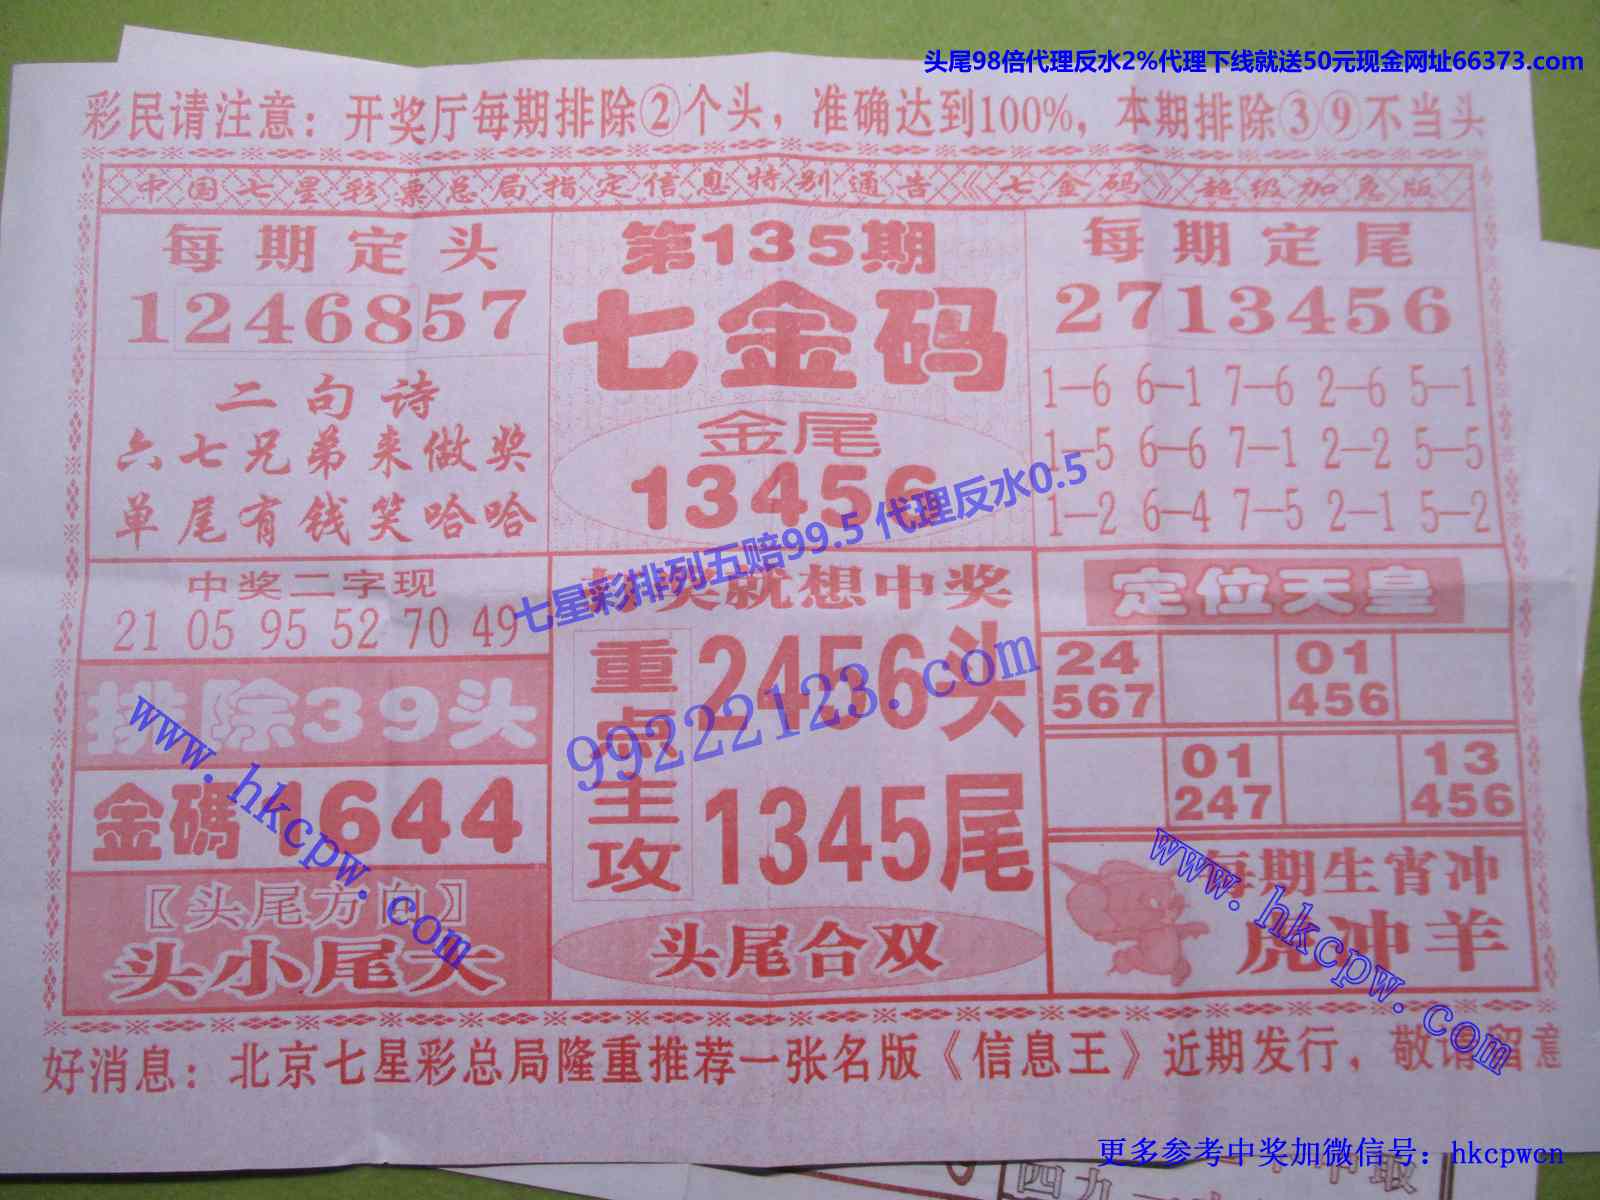 头尾98倍代理反水2%代理下线就送50元现金网址66373.com
彩民请注意：开奖厅每期排除②个头，准确达到100%，本期排除③⑨不当头
中国七星彩票总局指定信息特别通告《七金码》超级加急版
每期定头
1246857
二句诗
六七兄弟来做奖
单尾有钱笑哈哈
第135期
七金码
金尾
13456
每期定尾
2713456
1—6 6—1 7—6 2—6 5—1
1—5 6—6 7—1 2—2 5—5
1—2 6—4 7—5 2—1 5—2
七星彩排列五赔99.5 代理反水0.5
中奖二字现
21 05 95 52 70 49
排除39头
金碼1644
〖头尾方向〗
头小尾大
奖就想中奖
重点主攻
2456头
1345尾
头尾合双
99222123.com
定位天皇
24
567
01
456
01
247
13
456
每期生宵冲
虎冲羊
www.hkcpw.com
www.hkcpw.com
好消息：北京七星彩总局隆重推荐一张名版《信息王》近期发行，敬请留意
更多参考中奖加微信号：hkcpwcn
四九